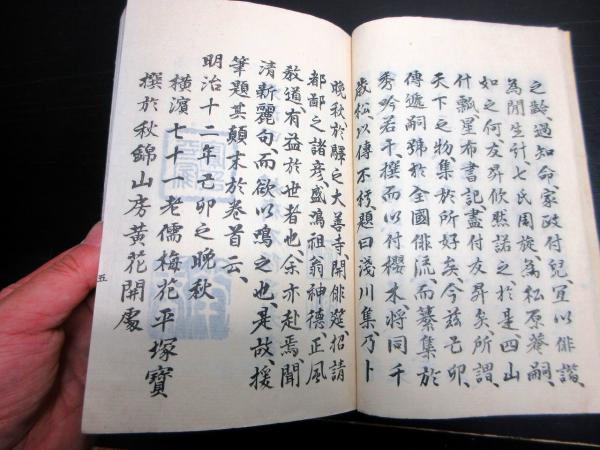 之齡、過知命、家政付兒、宜以俳諧
為閒生計、七氏周旋、為松原菴嗣、
如之何、友昇攸然諾之、於是四山
什瓢、星布書記、盡付友昇矣、所謂
天下之物、集於所好矣、今茲己卯、
傳遞嗣號於全國俳流、而纂集於
秀吟若干、撰而以付櫻木、將同千
歲松、以傳不朽、題曰淺川集、乃卜
晚秋於驛之大善寺、開俳筵、招請
都鄙之諸彥、盛鴻祖翁神德正風
教道、有益於世者也、余亦赴焉、聞
清新麗句、而欲以鳴之也、是故援
筆題其顛末於卷首云、
明治十二年己卯之晚秋
橫濱七十一老儒梅花平塚寶
撰於秋錦山房黃花開處
五